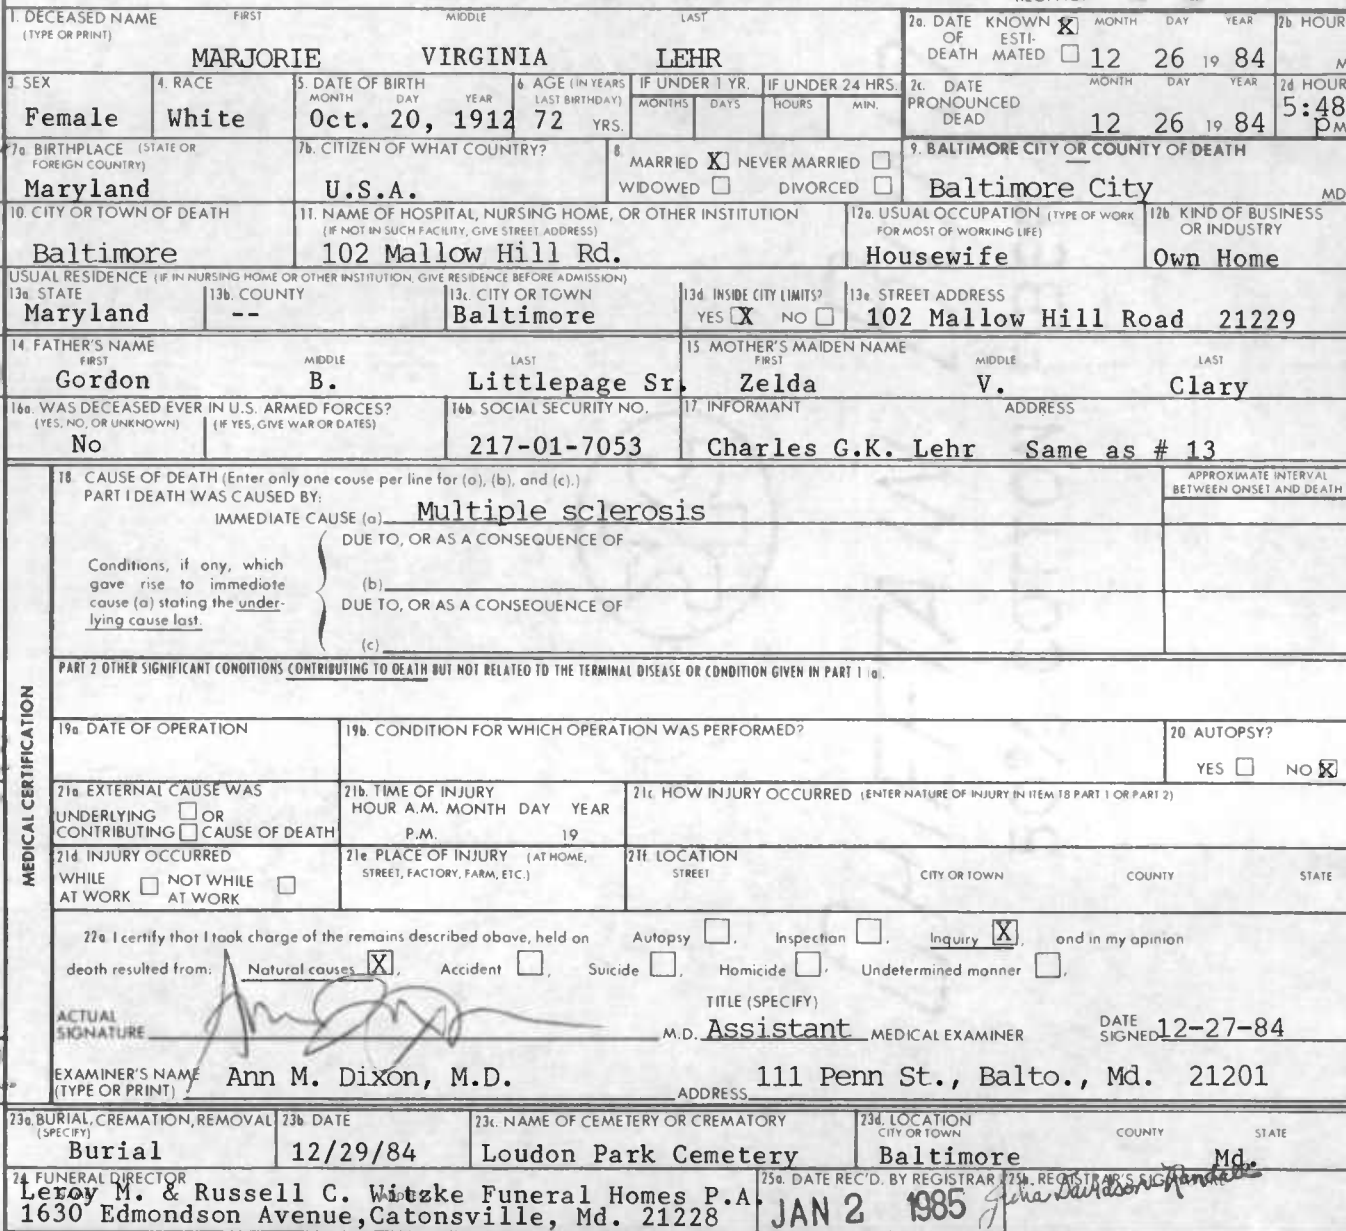 1. DECEASED NAME FIRST MIDDLE LAST
(TYPE OR PRINT)
MARJORIE VIRGINIA LEHR
2a. DATE OF DEATH KNOWN X ESTIMATED MONTH DAY YEAR
12 26 19 84
2b HOUR
M
3 SEX
Female
4. RACE
White
5. DATE OF BIRTH
MONTH DAY YEAR
Oct. 20, 1912
6 AGE (IN YEARS LAST BIRTHDAY)
72 YRS.
IF UNDER 1 YR. IF UNDER 24 HRS.
MONTHS DAYS HOURS MIN.
2c. DATE PRONOUNCED DEAD MONTH DAY YEAR
12 26 19 84
2d HOUR
5:48
PM
7a BIRTHPLACE (STATE OR FOREIGN COUNTRY)
Maryland
7b. CITIZEN OF WHAT COUNTRY?
U.S.A.
8
MARRIED X NEVER MARRIED
WIDOWED DIVORCED
9. BALTIMORE CITY OR COUNTY OF DEATH
Baltimore City MD
10. CITY OR TOWN OF DEATH
Baltimore
11. NAME OF HOSPITAL, NURSING HOME, OR OTHER INSTITUTION
(IF NOT IN SUCH FACILITY, GIVE STREET ADDRESS)
102 Mallow Hill Rd.
12a. USUAL OCCUPATION (TYPE OF WORK FOR MOST OF WORKING LIFE)
Housewife
12b. KIND OF BUSINESS OR INDUSTRY
Own Home
USUAL RESIDENCE (IF IN NURSING HOME OR OTHER INSTITUTION, GIVE RESIDENCE BEFORE ADMISSION)
13a STATE
Maryland
13b. COUNTY
--
13c. CITY OR TOWN
Baltimore
13d. INSIDE CITY LIMITS?
YES X NO
13e. STREET ADDRESS
102 Mallow Hill Road 21229
14. FATHER'S NAME
FIRST MIDDLE LAST
Gordon B. Littlepage Sr.
15 MOTHER'S MAIDEN NAME
FIRST MIDDLE LAST
Zelda V. Clary
16a. WAS DECEASED EVER IN U.S. ARMED FORCES?
(YES, NO, OR UNKNOWN) (IF YES, GIVE WAR OR DATES)
No
16b. SOCIAL SECURITY NO.
217-01-7053
17 INFORMANT ADDRESS
Charles G.K. Lehr Same as # 13
MEDICAL CERTIFICATION
18 CAUSE OF DEATH (Enter only one cause per line for (a), (b), and (c).)
PART I DEATH WAS CAUSED BY:
IMMEDIATE CAUSE (a) Multiple sclerosis
APPROXIMATE INTERVAL
BETWEEN ONSET AND DEATH
DUE TO, OR AS A CONSEQUENCE OF
Conditions, if any, which
gave rise to immediate
cause (a) stating the under-
lying cause last.
(b)
DUE TO, OR AS A CONSEQUENCE OF
(c)
PART 2 OTHER SIGNIFICANT CONDITIONS CONTRIBUTING TO DEATH BUT NOT RELATED TO THE TERMINAL DISEASE OR CONDITION GIVEN IN PART 1 (a).
19a. DATE OF OPERATION
19b. CONDITION FOR WHICH OPERATION WAS PERFORMED?
20 AUTOPSY?
YES NO X
21a EXTERNAL CAUSE WAS
UNDERLYING OR
CONTRIBUTING CAUSE OF DEATH
21b. TIME OF INJURY
HOUR A.M. MONTH DAY YEAR
P.M. 19
21c. HOW INJURY OCCURRED (ENTER NATURE OF INJURY IN ITEM 18 PART 1 OR PART 2)
21d INJURY OCCURRED
WHILE AT WORK NOT WHILE AT WORK
21e PLACE OF INJURY (AT HOME,
STREET, FACTORY, FARM, ETC.)
21f. LOCATION
STREET CITY OR TOWN COUNTY STATE
22a I certify that I took charge of the remains described above, held on Autopsy, Inspection, Inquiry X, and in my opinion
death resulted from: Natural causes X, Accident, Suicide, Homicide, Undetermined manner,
TITLE (SPECIFY)
ACTUAL
SIGNATURE M.D. Assistant MEDICAL EXAMINER DATE SIGNED 12-27-84
EXAMINER'S NAME
(TYPE OR PRINT) Ann M. Dixon, M.D. ADDRESS 111 Penn St., Balto., Md. 21201
23a. BURIAL, CREMATION, REMOVAL
(SPECIFY)
Burial
23b. DATE
12/29/84
23c. NAME OF CEMETERY OR CREMATORY
Loudon Park Cemetery
23d. LOCATION
CITY OR TOWN COUNTY STATE
Baltimore Md.
24 FUNERAL DIRECTOR
Leroy M. & Russell C. Witzke Funeral Homes P.A.
1630 Edmondson Avenue, Catonsville, Md. 21228
25a. DATE REC'D. BY REGISTRAR
JAN 2 1985
25b. REGISTRAR'S SIGNATURE
Julia Davidson-Randall